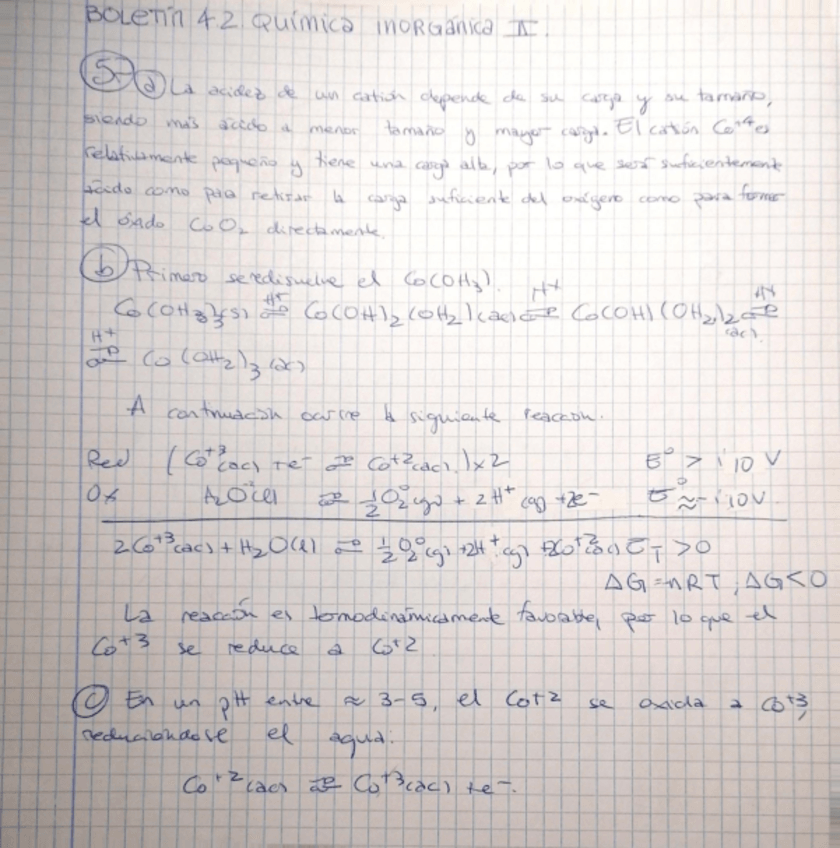 BOLETÍN 4.2 QUÍMICA INORGÁNICA II.
5- a) La acidez de un catión depende de su carga y su tamaño,
siendo más ácido a menor tamaño y mayor carga. El catión Co+4 es
relativamente pequeño y tiene una carga alta, por lo que será suficientemente
ácido como para retirar la carga suficiente del oxígeno como para formar
el óxido CoO2 directamente.
b) Primero se redisuelve el Co(OH3).
Co(OH3)3(s) ⇌ H+ Co(OH)2(OH2)(ac) ⇌ H+ Co(OH)(OH2)2(ac) ⇌ H+
⇌ H+ Co(OH2)3(ac)
A continuación ocurre la siguiente reacción.
Red (Co+3(ac) + e- ⇌ Co+2(ac).)x2 E° > 1'10 V
Ox H2O(l) ⇌ 1/2 O2°(g) + 2H+(g) + 2e- E° ≈ -1'10V.
2Co+3(ac) + H2O(l) ⇌ 1/2 O2°(g) + 2H+(g) + 2Co+2(ac) ET > 0
ΔG = nRT, ΔG < 0
La reacción es termodinámicamente favorable, por lo que el
Co+3 se reduce a Co+2
c) En un pH entre ≈ 3-5, el Co+2 se oxida a Co+3,
reduciéndose el agua:
Co+2(ac) ⇌ Co+3(ac) + e-.